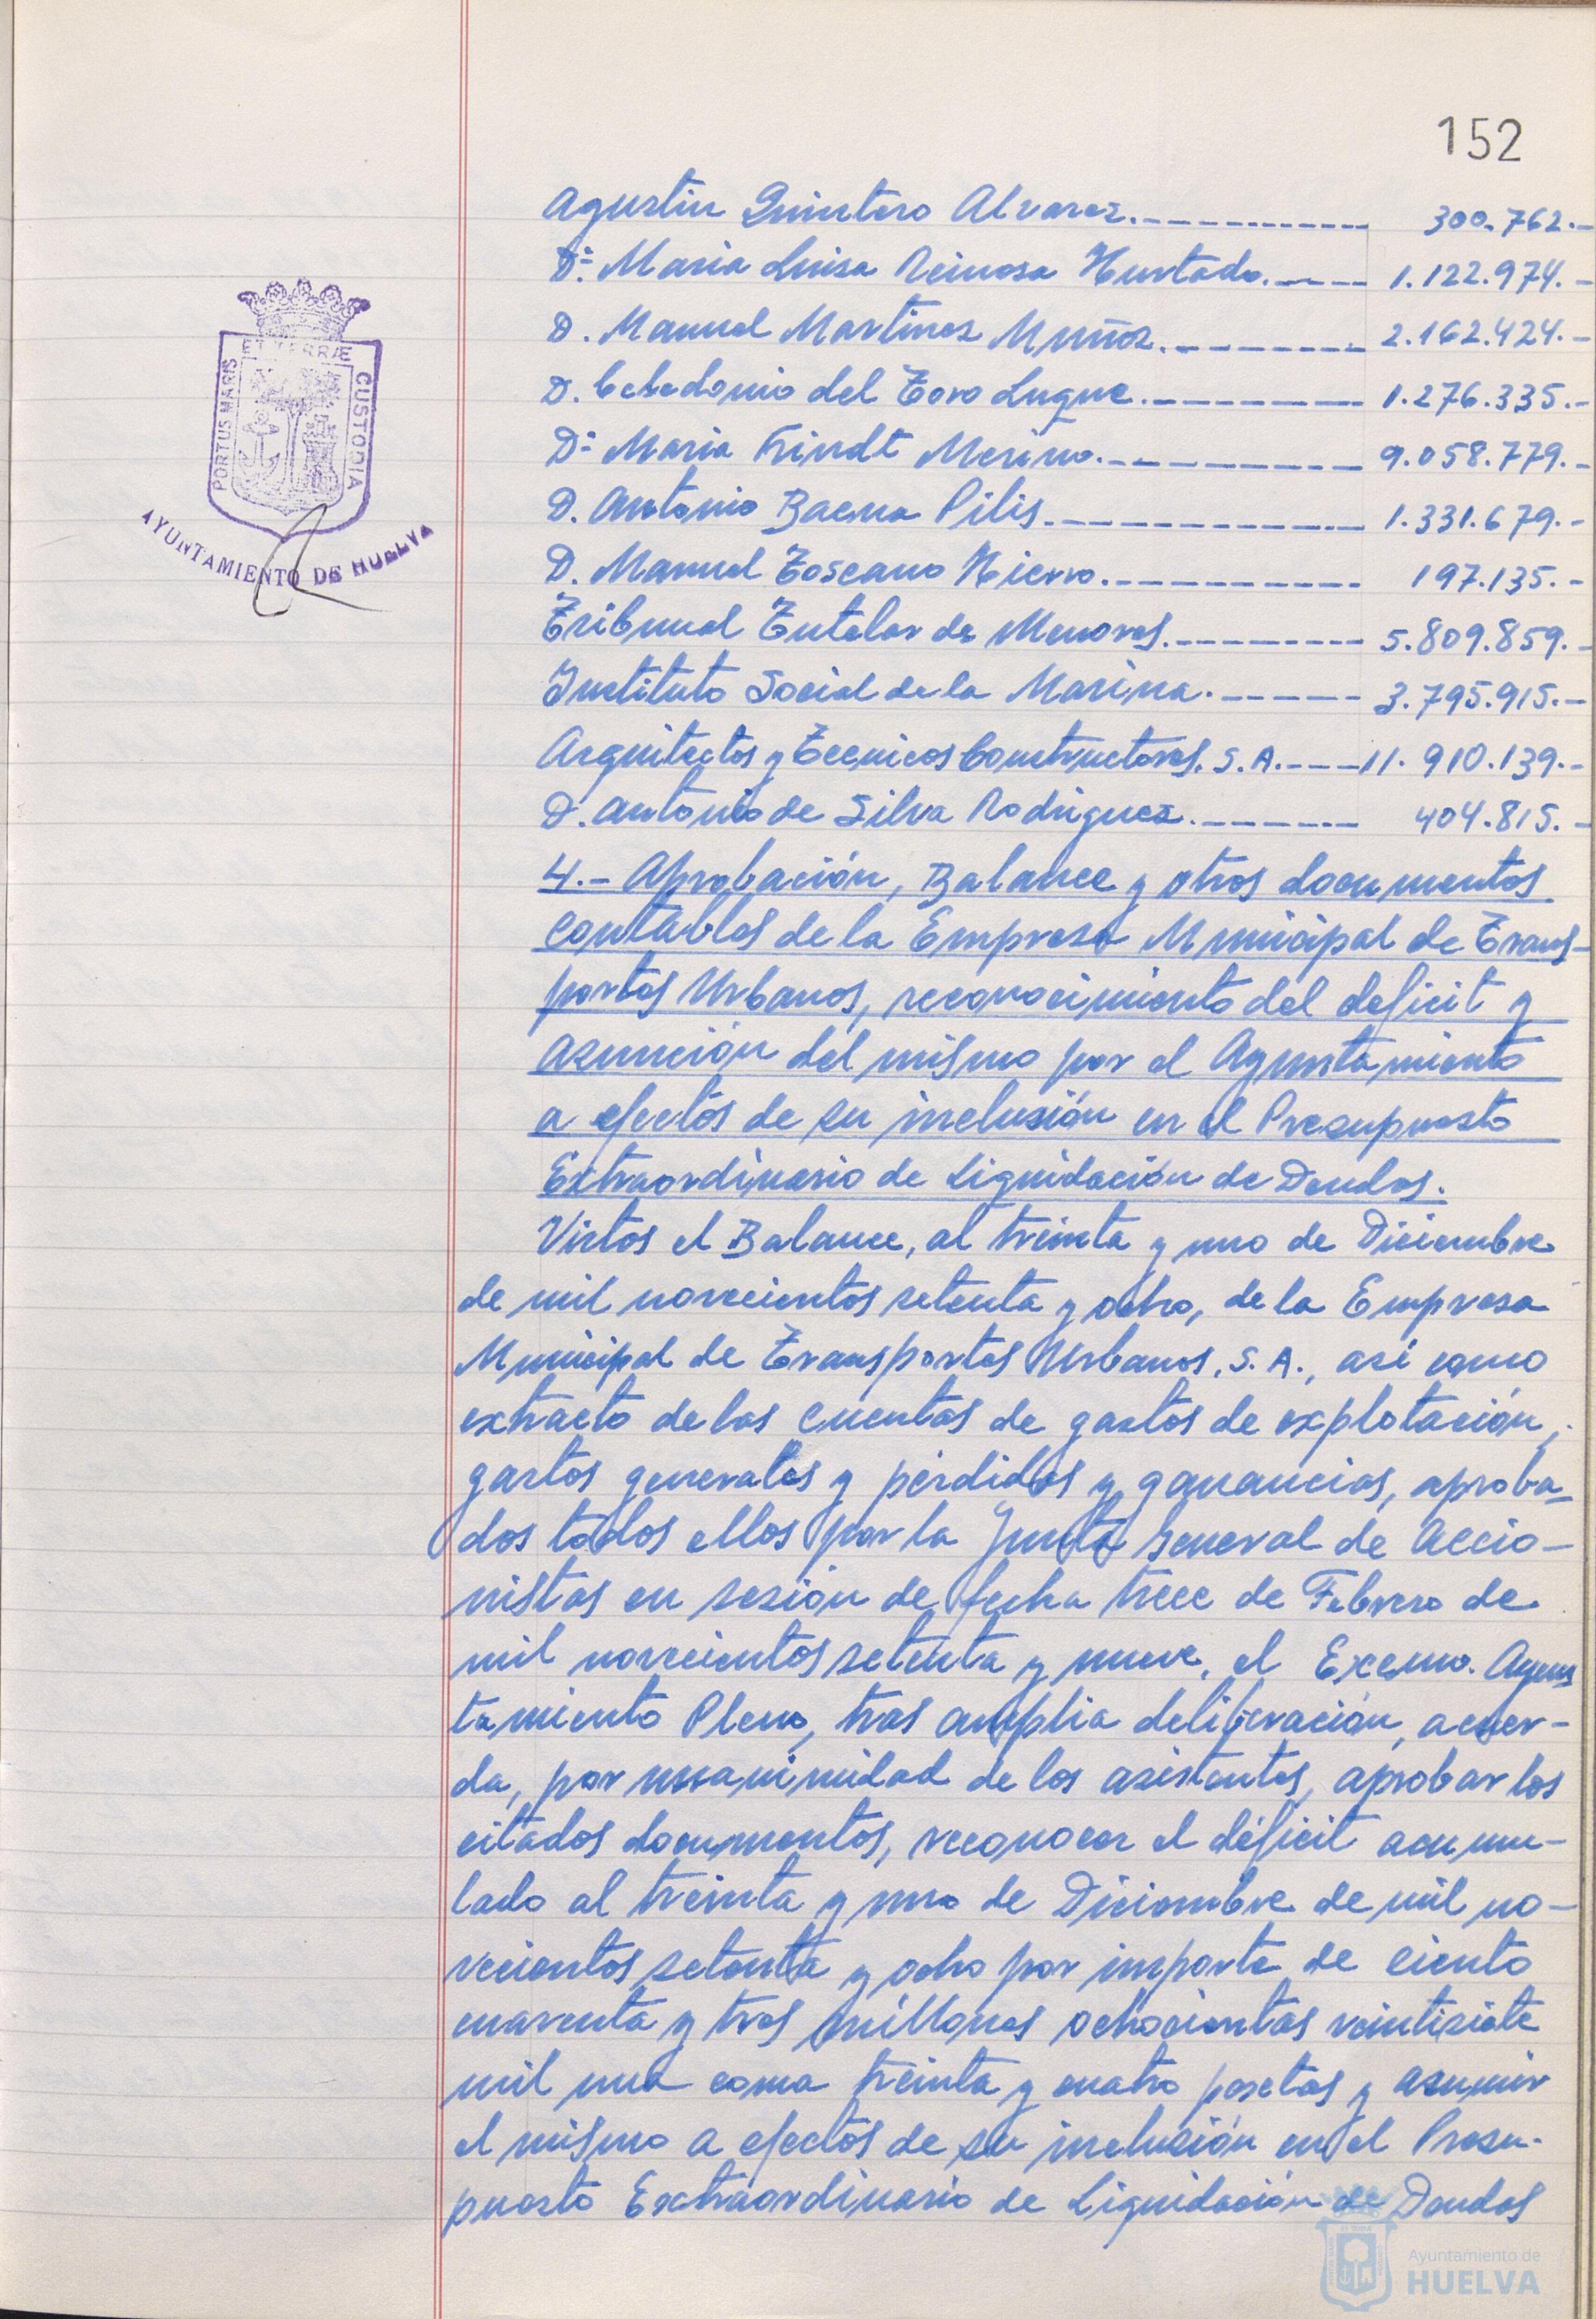 152
Agustin Quintero Alvarez.---------- 300.762.-
Dª Maria Luisa Reinosa Hurtado.---- 1.122.974.-
D. Manuel Martinez Muñoz.-------- 2.162.424.-
D. Celedonio del Toro Luque.--------- 1.276.335.-
Dª Maria Trindt Merino.---------- 9.058.779.-
D. Antonio Baena Pilis.------------- 1.331.679.-
D. Manuel Toscano Hierro.---------- 197.135.-
Tribunal Tutelar de Menores.--------- 5.809.859.-
Instituto Social de la Marina.------ 3.795.915.-
Arquitectos y Tecnicos Constructores, S.A.----11.910.139.-
D. Antonio de Silva Rodriguez.------- 404.815.-
4.- Aprobación, Balance y otros documentos
contables de la Empresa Municipal de Trans-
portes Urbanos, reconocimiento del deficit y
asunción del mismo por el Ayuntamiento
a efectos de su inclusión en el Presupuesto
Extraordinario de Liquidación de Deudas.
Vistos el Balance, al treinta y uno de Diciembre
de mil novecientos setenta y ocho, de la Empresa
Municipal de Transportes Urbanos, S.A., asi como
extracto de las cuentas de gastos de explotación,
gastos generales y pérdidas y ganancias, aproba-
dos todos ellos por la Junta General de Accio-
nistas en sesión de fecha trece de Febrero de
mil novecientos setenta y nueve, el Excmo. Ayun
tamiento Pleno, tras amplia deliberación, acuer-
da, por unanimidad de los asistentes, aprobar los
citados documentos, reconocer el déficit acumu-
lado al treinta y uno de Diciembre de mil no-
vecientos setenta y ocho por importe de ciento
cuarenta y tres millones ochocientas veintisiete
mil una coma treinta y cuatro pesetas y asumir
el mismo a efectos de su inclusión en el Presu-
puesto Extraordinario de Liquidación de Deudas
PORTUS MARIS ET TERRÆ CUSTODIA
AYUNTAMIENTO DE HUELVA
Ayuntamiento de
HUELVA